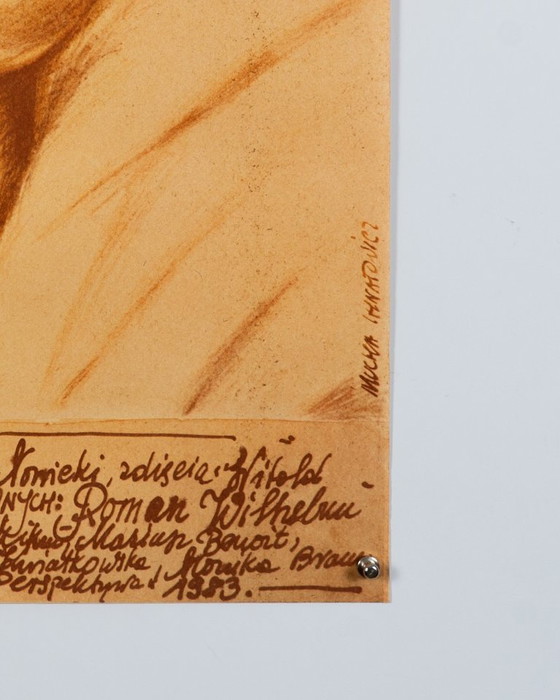 MUCHA IHNATOWICZ
Nowicki, zdjęcia: Witold
NYCH: Roman Wilhelmi
Marian Benoit,
Kwiatkowska Monika Braun
Perspektywa". 1983.